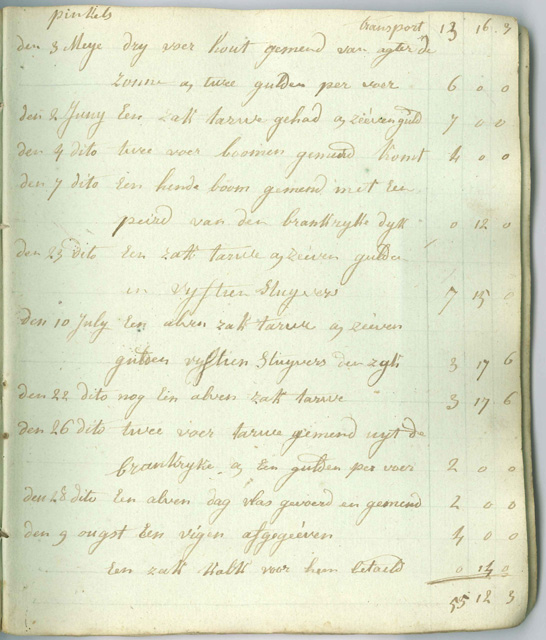 pinkels
transport 13 16 3
den 3 Meye dry voer hout gemend van agter de
zonne a twee gulden per voer 6 0 0
den 2 Juny Een zak tarwe gehad a zeeven guld 7 0 0
den 4 dito twee voer boomen gemend komt 4 0 0
den 7 dito Een hende boom gemend met Een
peird van den brankryke dyk 0 12 0
den 23 dito Een zak tarwe a zeeven gulden
en vyftien Stuyvers 7 15 0
den 10 July Een alven zak tarwe a zeeven
gulden vyftien Stuyvers den zak 3 17 6
den 22 dito nog Een alven zak tarwe 3 17 6
den 26 dito twee voer tarwe gemend uyt de
brankryke a Een gulden per voer 2 0 0
den 28 dito Een alven dag vlas gevoerd en gemend 2 0 0
den 9 ougst Een vigen afgegeeven 4 0 0
Een zak kalk voor hem betaeld 0 14 0
55 12 3